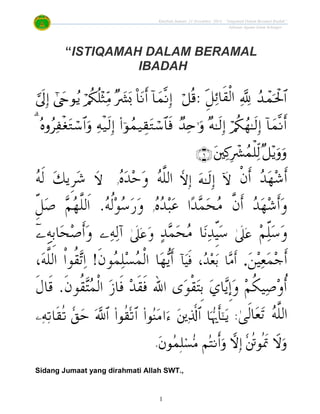 Khutbah Jumaat 11 Disember 2015: "Istiqamah Dalam Beramal Ibadat"
“ISTIQAMAH DALAM BERAMAL
IBADAH
ٱلْحَمْدُ لِلَّهِ الْقَائِلِ: قُلْ إِنَّمَآ أَنَا۠ بَشَرٌ مِّثْلُكُمْ يُوحَىٰٓ إِلَىَّ
أَنَّمَآ إِلَـٰهُكُمْ إِلَـٰهٌ وَٰحِدٌ فَٱسْتَقِيمُوٓا۟ إِلَيْهِ وَٱسْتَغْفِرُوهُ ۗ
وَوَيْلٌ لِّلْمُشْرِكِينَ ۝
أَشْهَدُ أَنْ لَآ إِلَـٰهَ إِلاَّ اللَّهُ وَحْدَهُ، لاَ شَرِيكَ لَهُ
وَأَشْهَدُ أَنَّ مُحَمَّدًا عَبْدُهُ، وَرَسُولُهُ. اللَّهُمَّ صَلِّ
وَسَلِّمْ عَلَىٰ سَيِّدِنَا مُحَمَّدٍ وَعَلَىٰٓ ءَالِهِۦ وَأَصْحَابِهِۦٓ
أَجْمَعِينَ. أَمَّا بَعْدُ، فَيَآ أَيُّهَا الْمُسْلِمُونَ! اتَّقُوا اللَّهَ،
أُوصِيكُمْ وَإِيَّايَ بِتَقْوَى الله فَقَدْ فَازَ الْمُتَّقُونَ. قَالَ
اللَّهُ تَعَالَىٰ: يَـٰٓأَيُّهَا ٱلَّذِينَ ءَامَنُوا۟ ٱتَّقُوا۟ ٱللَّهَ حَقَّ تُقَاتِهِۦ
وَلَا تَمُوتُنَّ إِلَّا وَأَنتُم مُّسْلِمُونَ.
Sidang Jumaat yang dirahmati Allah SWT.,
1